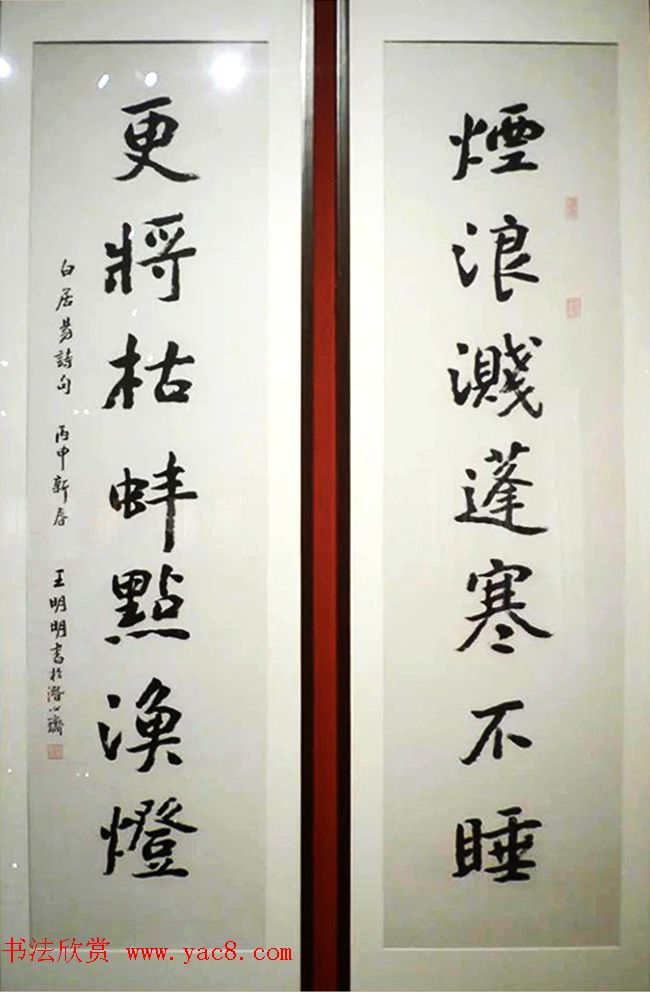 煙浪濺蓬寒不睡
更將枯蚌點漁燈
白居易詩句 丙申新春 王明明書於潛心齋
书法欣赏 www.yac8.com